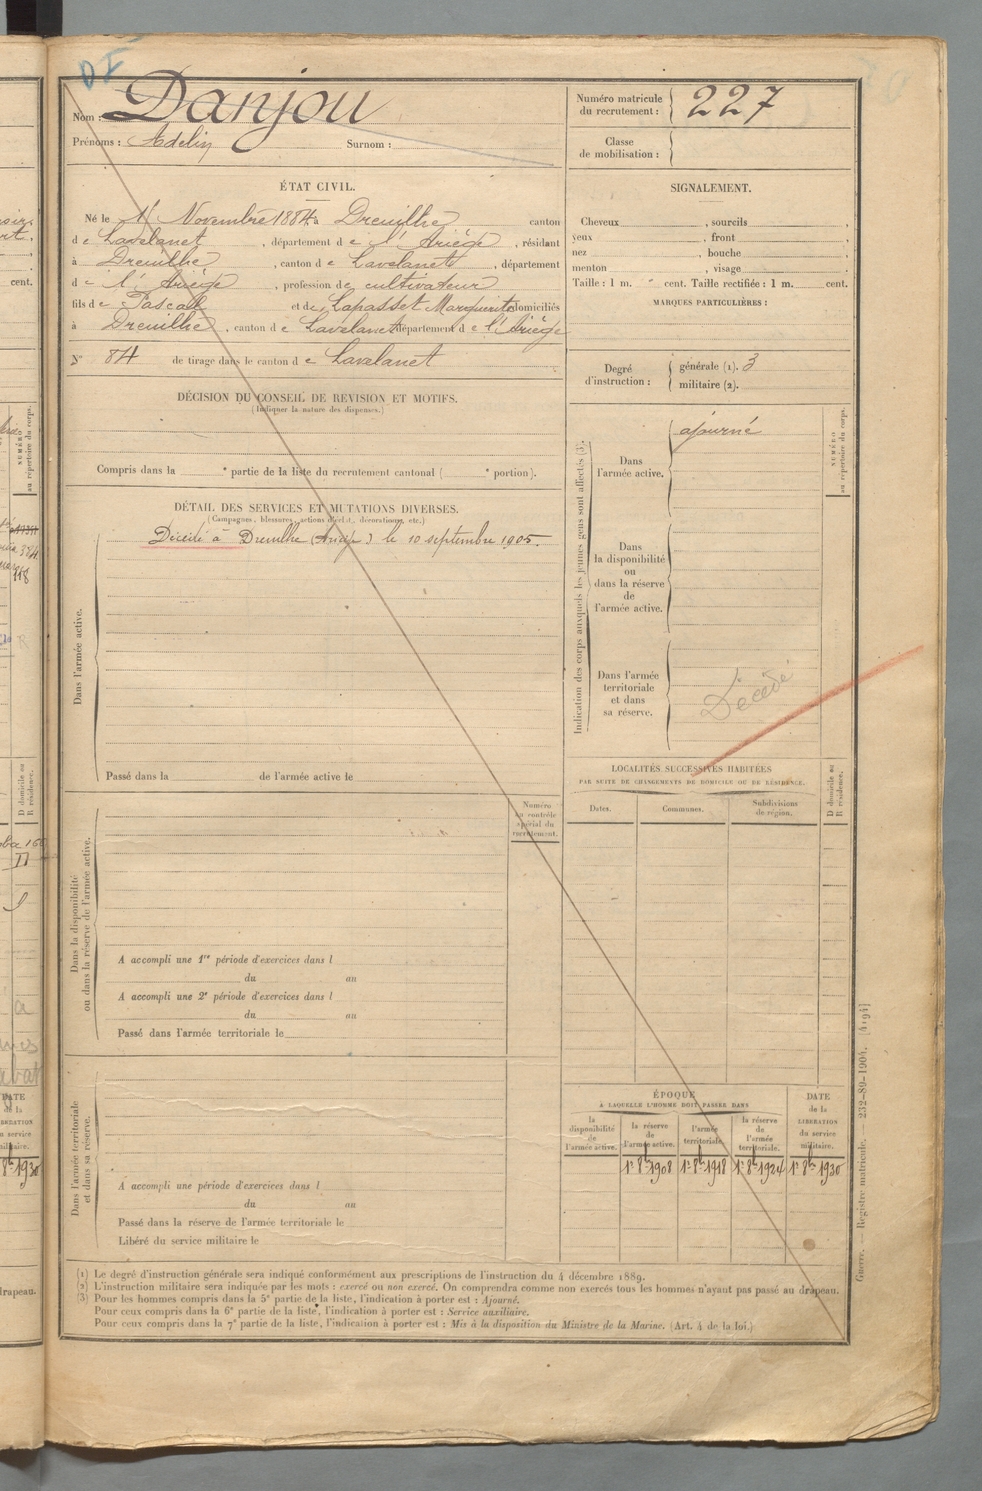 DI
Nom : Danjou
Prénoms : Adelin Surnom :
Numéro matricule
du recrutement : 227
Classe
de mobilisation :
ÉTAT CIVIL.
Né le 1r Novembre 1884 à Dreuilhe canton
de Lavelanet, département de l'Ariège, résidant
à Dreuilhe, canton de Lavelanet, département
de l'Ariège, profession de cultivateur
fils de Pascal et de Lapasset Marguerite domiciliés
à Dreuilhe, canton de Lavelanet département de l'Ariège
N° 84 de tirage dans le canton de Lavelanet
SIGNALEMENT.
Cheveux , sourcils ,
yeux , front ,
nez , bouche ,
menton , visage .
Taille : 1 m. " cent. Taille rectifiée : 1 m. cent.
MARQUES PARTICULIÈRES :
Degré
d'instruction :
générale (1). 3
militaire (2).
DÉCISION DU CONSEIL DE REVISION ET MOTIFS.
(Indiquer la nature des dispenses.)
Compris dans la ° partie de la liste du recrutement cantonal ( ° portion).
DÉTAIL DES SERVICES ET MUTATIONS DIVERSES.
(Campagnes, blessures, actions d'éclat, décorations, etc.)
Décédé à Dreuilhe (Ariège) le 10 septembre 1905.
Dans l'armée active.
Passé dans la de l'armée active le
Numéro
au contrôle
spécial du
recrutement.
Dans la disponibilité
ou dans la réserve de l'armée active.
A accompli une 1re période d'exercices dans l
du au
A accompli une 2e période d'exercices dans l
du au
Passé dans l'armée territoriale le
Dans l'armée territoriale
et dans sa réserve.
A accompli une période d'exercices dans l
du au
Passé dans la réserve de l'armée territoriale le
Libéré du service militaire le
Indication des corps auxquels les jeunes gens sont affectés (3).
NUMÉRO
au répertoire du corps.
Dans
l'armée active.
ajourné
Dans
la disponibilité
ou
dans la réserve
de
l'armée active.
Dans l'armée
territoriale
et dans
sa réserve.
Décédé
LOCALITÉS SUCCESSIVES HABITÉES
PAR SUITE DE CHANGEMENTS DE DOMICILE OU DE RÉSIDENCE.
Dates. Communes. Subdivisions
de région.
D domicile ou
R résidence.
ÉPOQUE
À LAQUELLE L'HOMME DOIT PASSER DANS
la
disponibilité
de
l'armée active.
la réserve
de
l'armée active.
l'armée
territoriale.
la réserve
de
l'armée
territoriale.
DATE
de la
LIBÉRATION
du service
militaire.
1r 8bre 1908 1r 8bre 1918 1r 8bre 1924 1r 8bre 1930
(1) Le degré d'instruction générale sera indiqué conformément aux prescriptions de l'instruction du 4 décembre 1889.
(2) L'instruction militaire sera indiquée par les mots : exercé ou non exercé. On comprendra comme non exercés tous les hommes n'ayant pas passé au drapeau.
(3) Pour les hommes compris dans la 5e partie de la liste, l'indication à porter est : Ajourné.
Pour ceux compris dans la 6e partie de la liste, l'indication à porter est : Service auxiliaire.
Pour ceux compris dans la 7e partie de la liste, l'indication à porter est : Mis à la disposition du Ministre de la Marine. (Art. 4 de la loi.)
Guerre. — Registre matricule. — 232-89-1904. [4194]